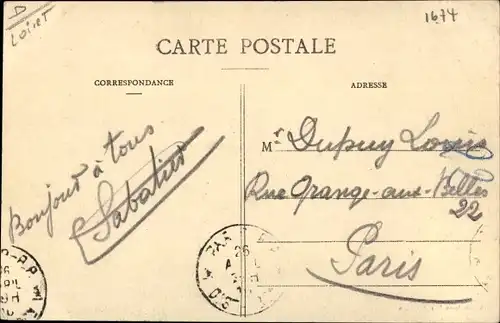 D
Loiret
1674
CARTE POSTALE
CORRESPONDANCE
ADRESSE
Bonjour à tous
Sabatier
Mr Dupuy Louis
Rue Grange-aux-Belles
22
Paris